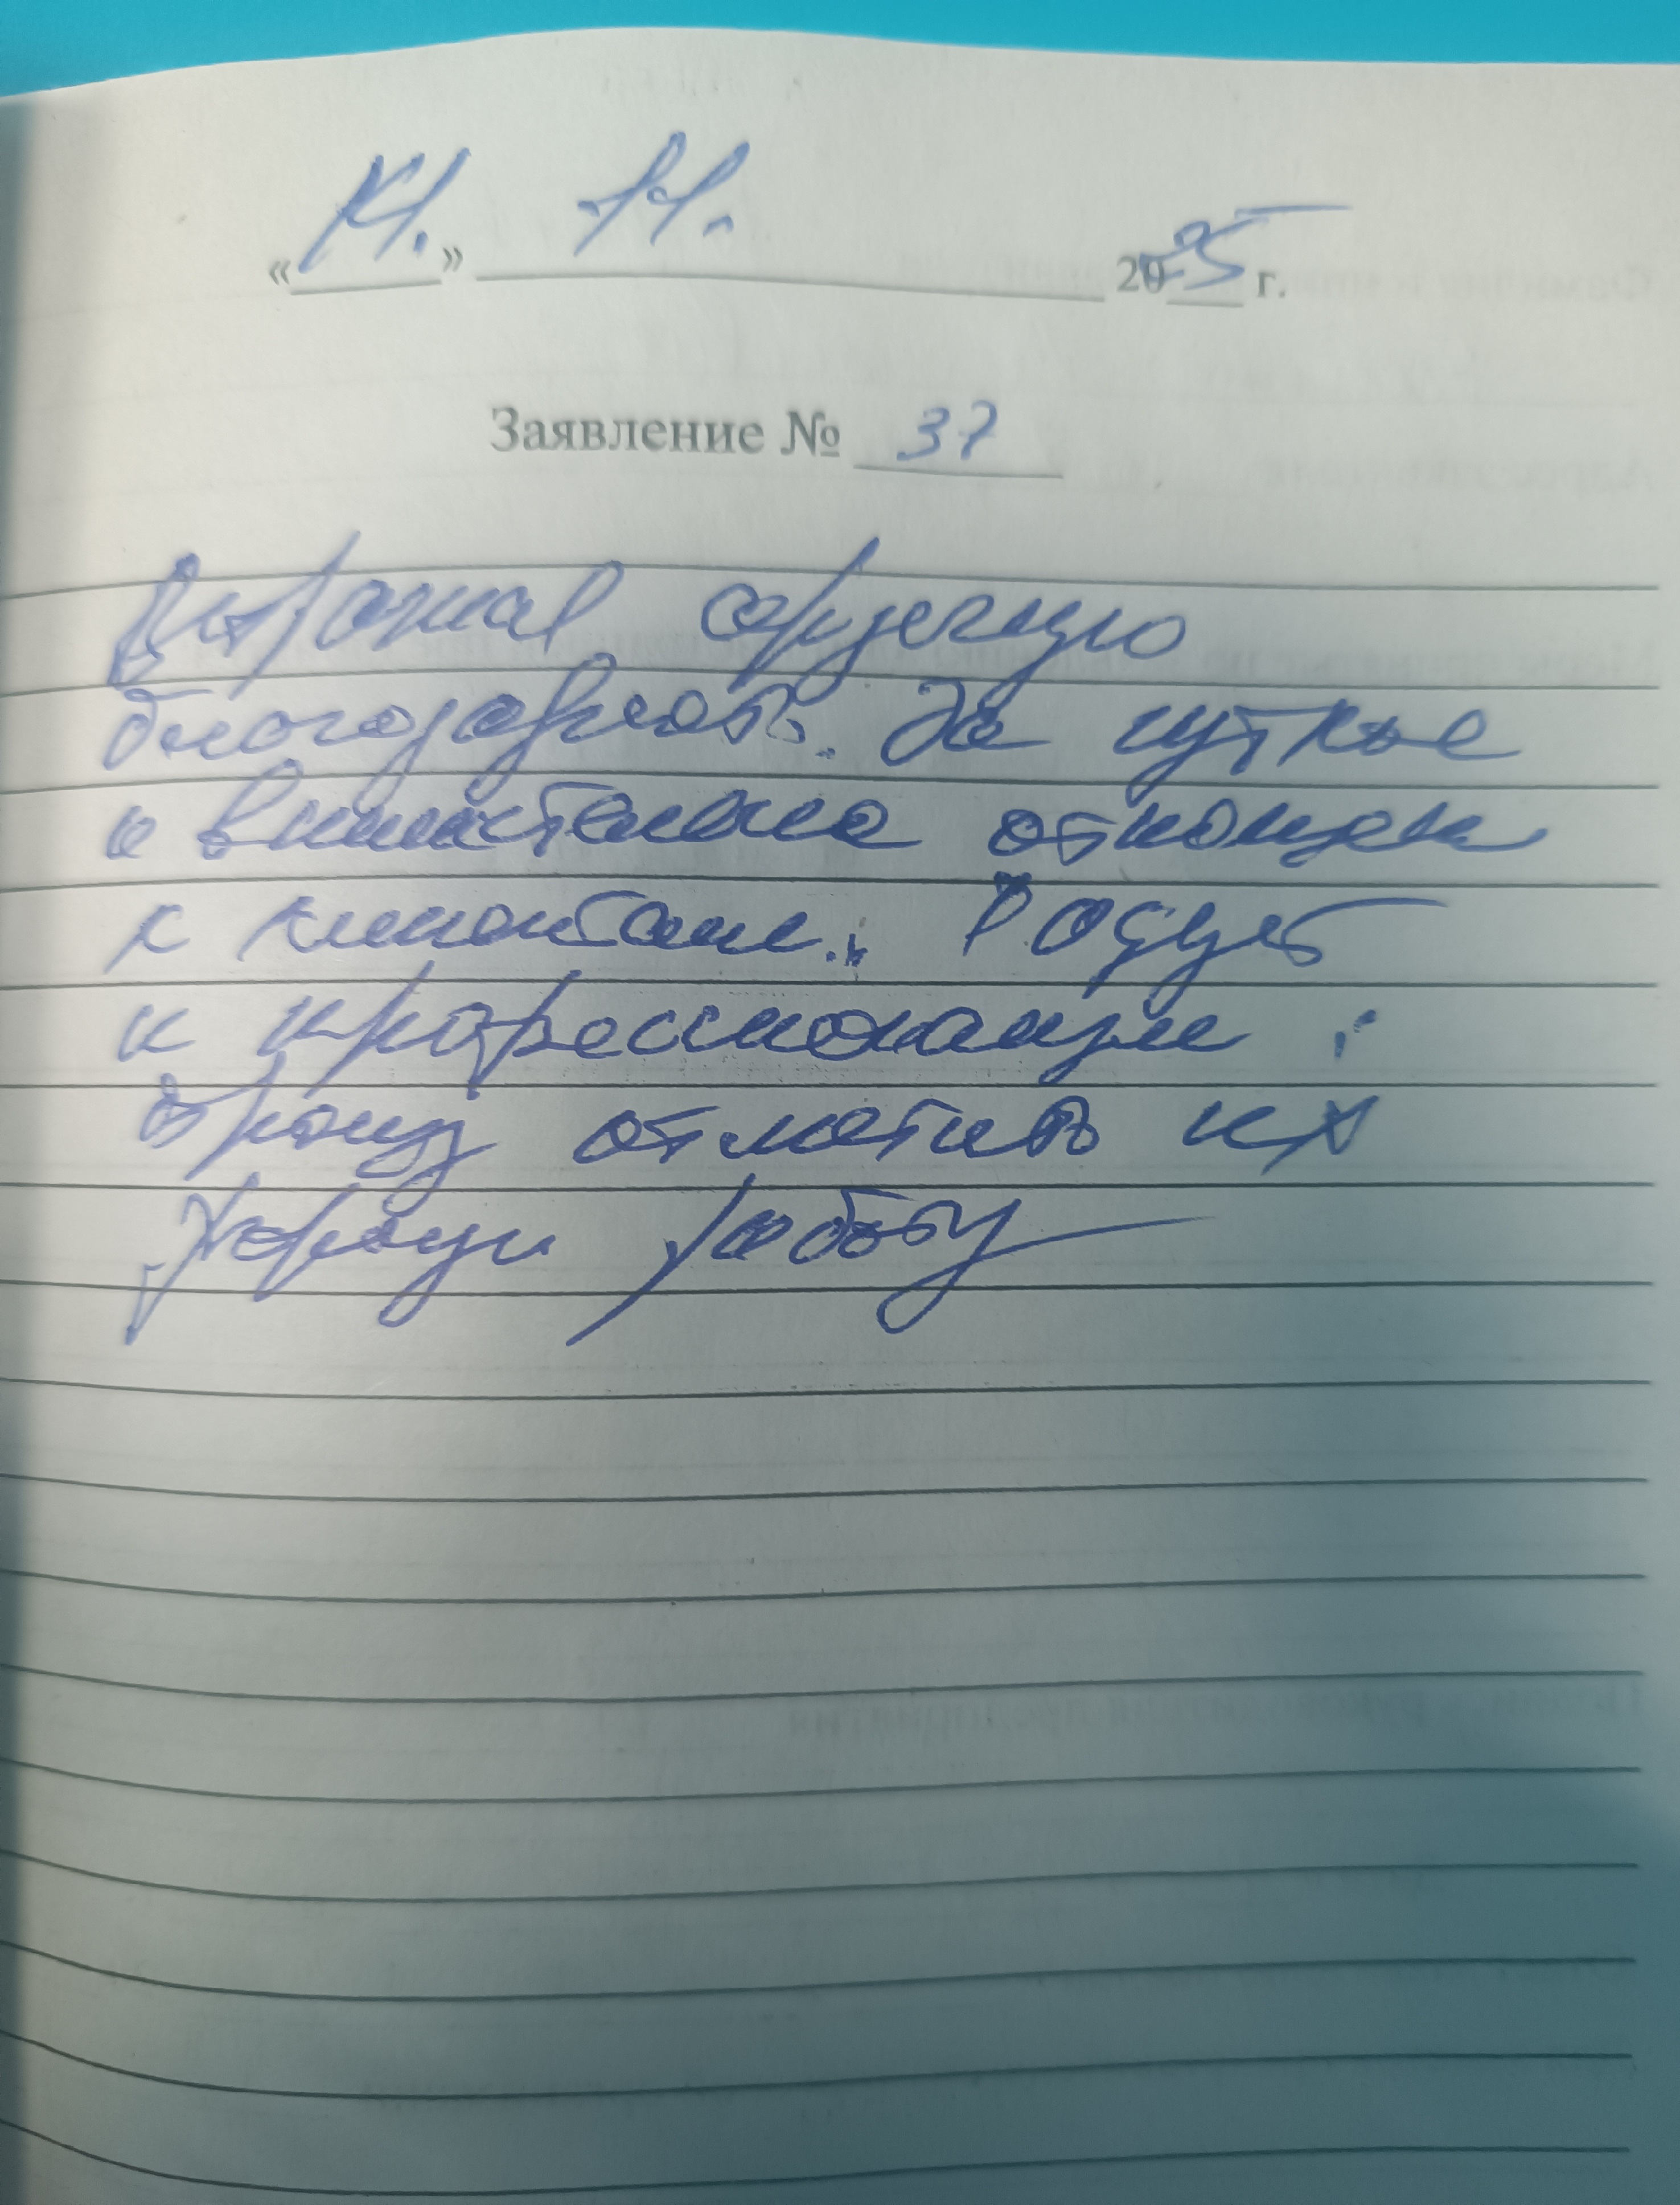 «14.» 11. 2025 г.
Заявление № 37
Выражаю огромную
благодарность. За чуткое
и внимательное отношение
к клиентам. Радует
и профессионализм.
Прошу отметить их
хорошую работу